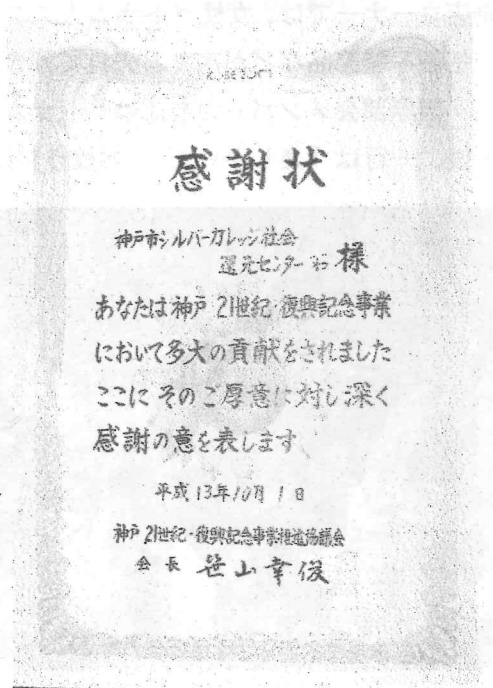 KOBE2001
感謝状
神戸市シルバーカレッジ社会
還元センター 様
あなたは神戸 21世紀・復興記念事業
において多大の貢献をされました
ここに そのご厚意に対し深く
感謝の意を表します
平成 13年10月 1 日
神戸 21世紀・復興記念事業推進協議会
会 長 笹山幸俊